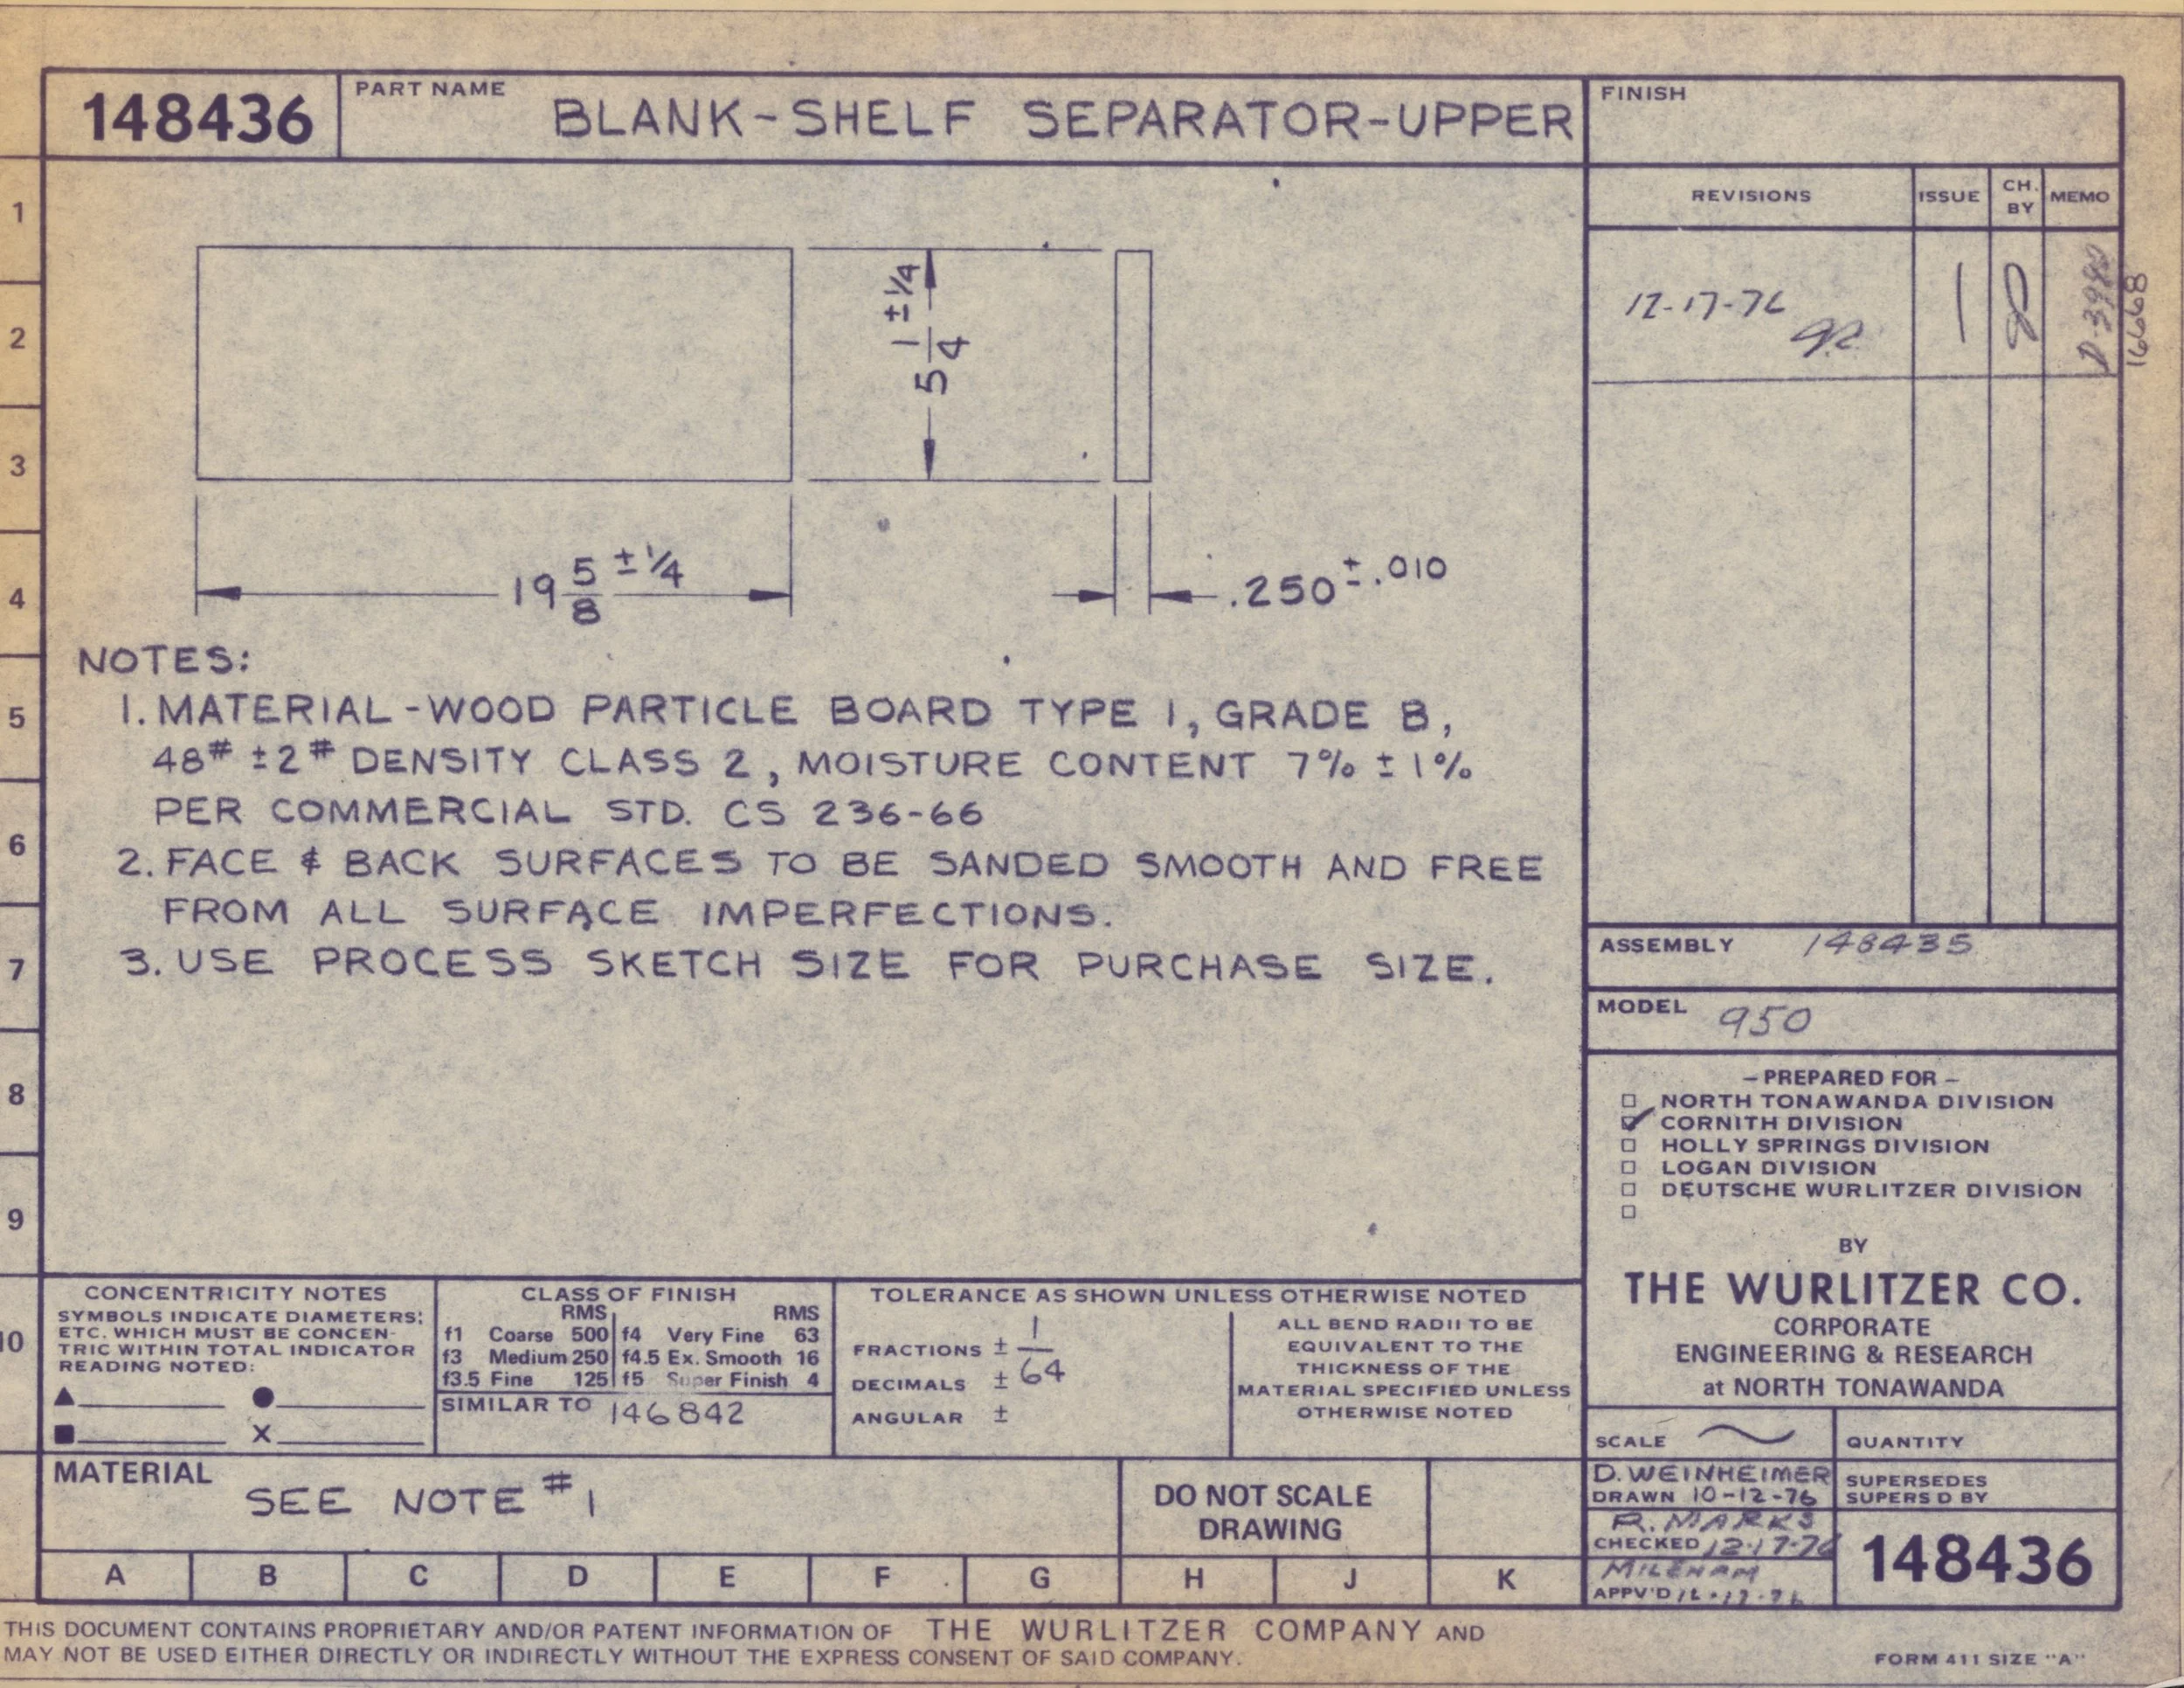 148436
PART NAME
BLANK-SHELF SEPARATOR-UPPER
FINISH
REVISIONS
ISSUE
CH. BY
MEMO
12-17-76
1
16668
1
2
3
4
5
6
7
8
9
10
5 1/4 ±1/4
19 5/8 ±1/4
.250 ±.010
NOTES:
1. MATERIAL-WOOD PARTICLE BOARD TYPE 1, GRADE B,
48# ±2# DENSITY CLASS 2, MOISTURE CONTENT 7% ±1%
PER COMMERCIAL STD. CS 236-66
2. FACE & BACK SURFACES TO BE SANDED SMOOTH AND FREE
FROM ALL SURFACE IMPERFECTIONS.
3. USE PROCESS SKETCH SIZE FOR PURCHASE SIZE.
ASSEMBLY 148435
MODEL 950
– PREPARED FOR –
NORTH TONAWANDA DIVISION
CORNITH DIVISION
HOLLY SPRINGS DIVISION
LOGAN DIVISION
DEUTSCHE WURLITZER DIVISION
BY
THE WURLITZER CO.
CORPORATE
ENGINEERING & RESEARCH
at NORTH TONAWANDA
CONCENTRICITY NOTES
SYMBOLS INDICATE DIAMETERS;
ETC. WHICH MUST BE CONCEN-
TRIC WITHIN TOTAL INDICATOR
READING NOTED:
X
CLASS OF FINISH
RMS RMS
f1 Coarse 500 f4 Very Fine 63
f3 Medium 250 f4.5 Ex. Smooth 16
f3.5 Fine 125 f5 Super Finish 4
SIMILAR TO 146842
TOLERANCE AS SHOWN UNLESS OTHERWISE NOTED
FRACTIONS ± 1/64
DECIMALS ±
ANGULAR ±
ALL BEND RADII TO BE
EQUIVALENT TO THE
THICKNESS OF THE
MATERIAL SPECIFIED UNLESS
OTHERWISE NOTED
SCALE
QUANTITY
D. WEINHEIMER
DRAWN 10-12-76
SUPERSEDES
SUPERS D BY
R. MARKS
CHECKED 12-17-76
MILENAM
APPV'D
148436
MATERIAL
SEE NOTE #1
DO NOT SCALE
DRAWING
A B C D E F G H J K
THIS DOCUMENT CONTAINS PROPRIETARY AND/OR PATENT INFORMATION OF THE WURLITZER COMPANY AND
MAY NOT BE USED EITHER DIRECTLY OR INDIRECTLY WITHOUT THE EXPRESS CONSENT OF SAID COMPANY.
FORM 411 SIZE "A"